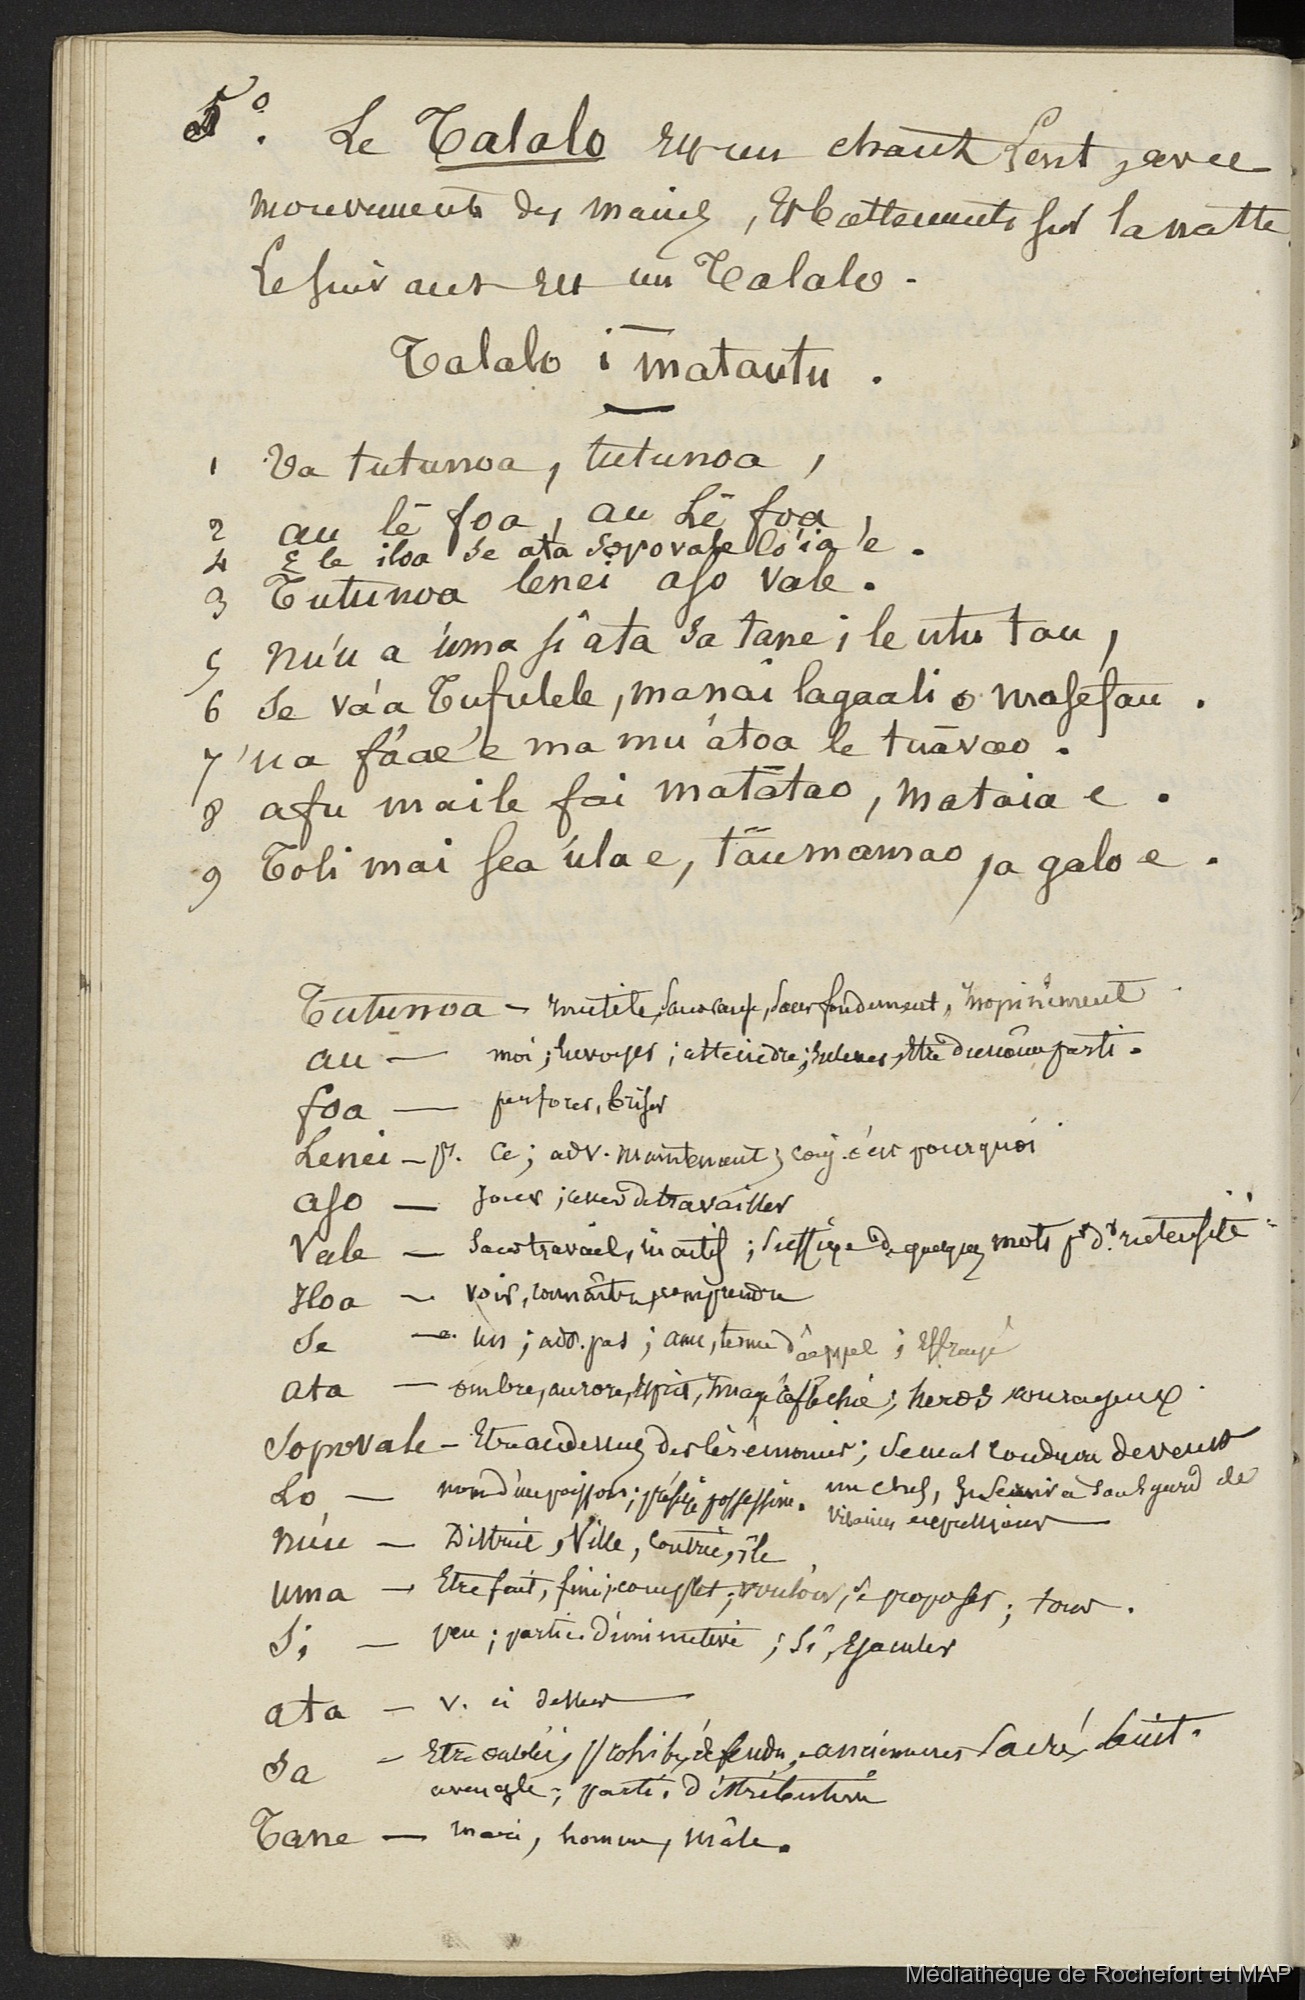 5°. Le Talalo est un chant lent, avec
mouvements des mains, et battements sur la natte.
Le suivant est un Talalo.
Talalo i matautu.
1 Va tutunoa, tutunoa,
2 au lē foa, au lē foa,
4 E le iloa se ata sopovale lō'ia'e.
3 Tutunoa lenei aso vale.
5 nu'u a 'uma si ata sa tane i le utu tau,
6 se va'a Tufulele, manai lagaali o masefau.
7 'ua fa'ae'e ma mu'atoa le tuāvao.
8 afu maile fai matātao, mataia e.
9 Toli mai sea 'ula e, tāumamao, ia galo e.
Tutunoa — inutile, sans cause, sans fondement, inopinément
au — moi; envoyer; atteindre; enlever, être du même parti.
foa — perforer, briser
Lenei — p. ce; adv. maintenant; conj. c'est pourquoi
aso — jour; cesser de travailler
Vale — sans travail, inactif; suffixe de quelques mots pr dr intensité
Iloa — voir, connaître, comprendre
Se — un; adv. pas; ami, terme d'appel; effrayé
ata — ombre, aurore, esprit, image réfléchie; héros courageux
Sopovale — Etre au dessus des cérémonies; se mal conduire devant
un chef,
Lo — nom d'un poisson; préfixe possessive.
Nu'u — District, Ville, contrée, île
uma — Etre fait, fini, complet; vouloir, se proposer; tour.
Si — peu; partic. diminutive; Si, Ejaculer
ata — v. ci dessus
Sa — Etre oublié, prohibé, défendu, anciennes sacré, saint.
aveugle; parti. distributive
Tane — mari, homme, mâle.
Médiathèque de Rochefort et MAP